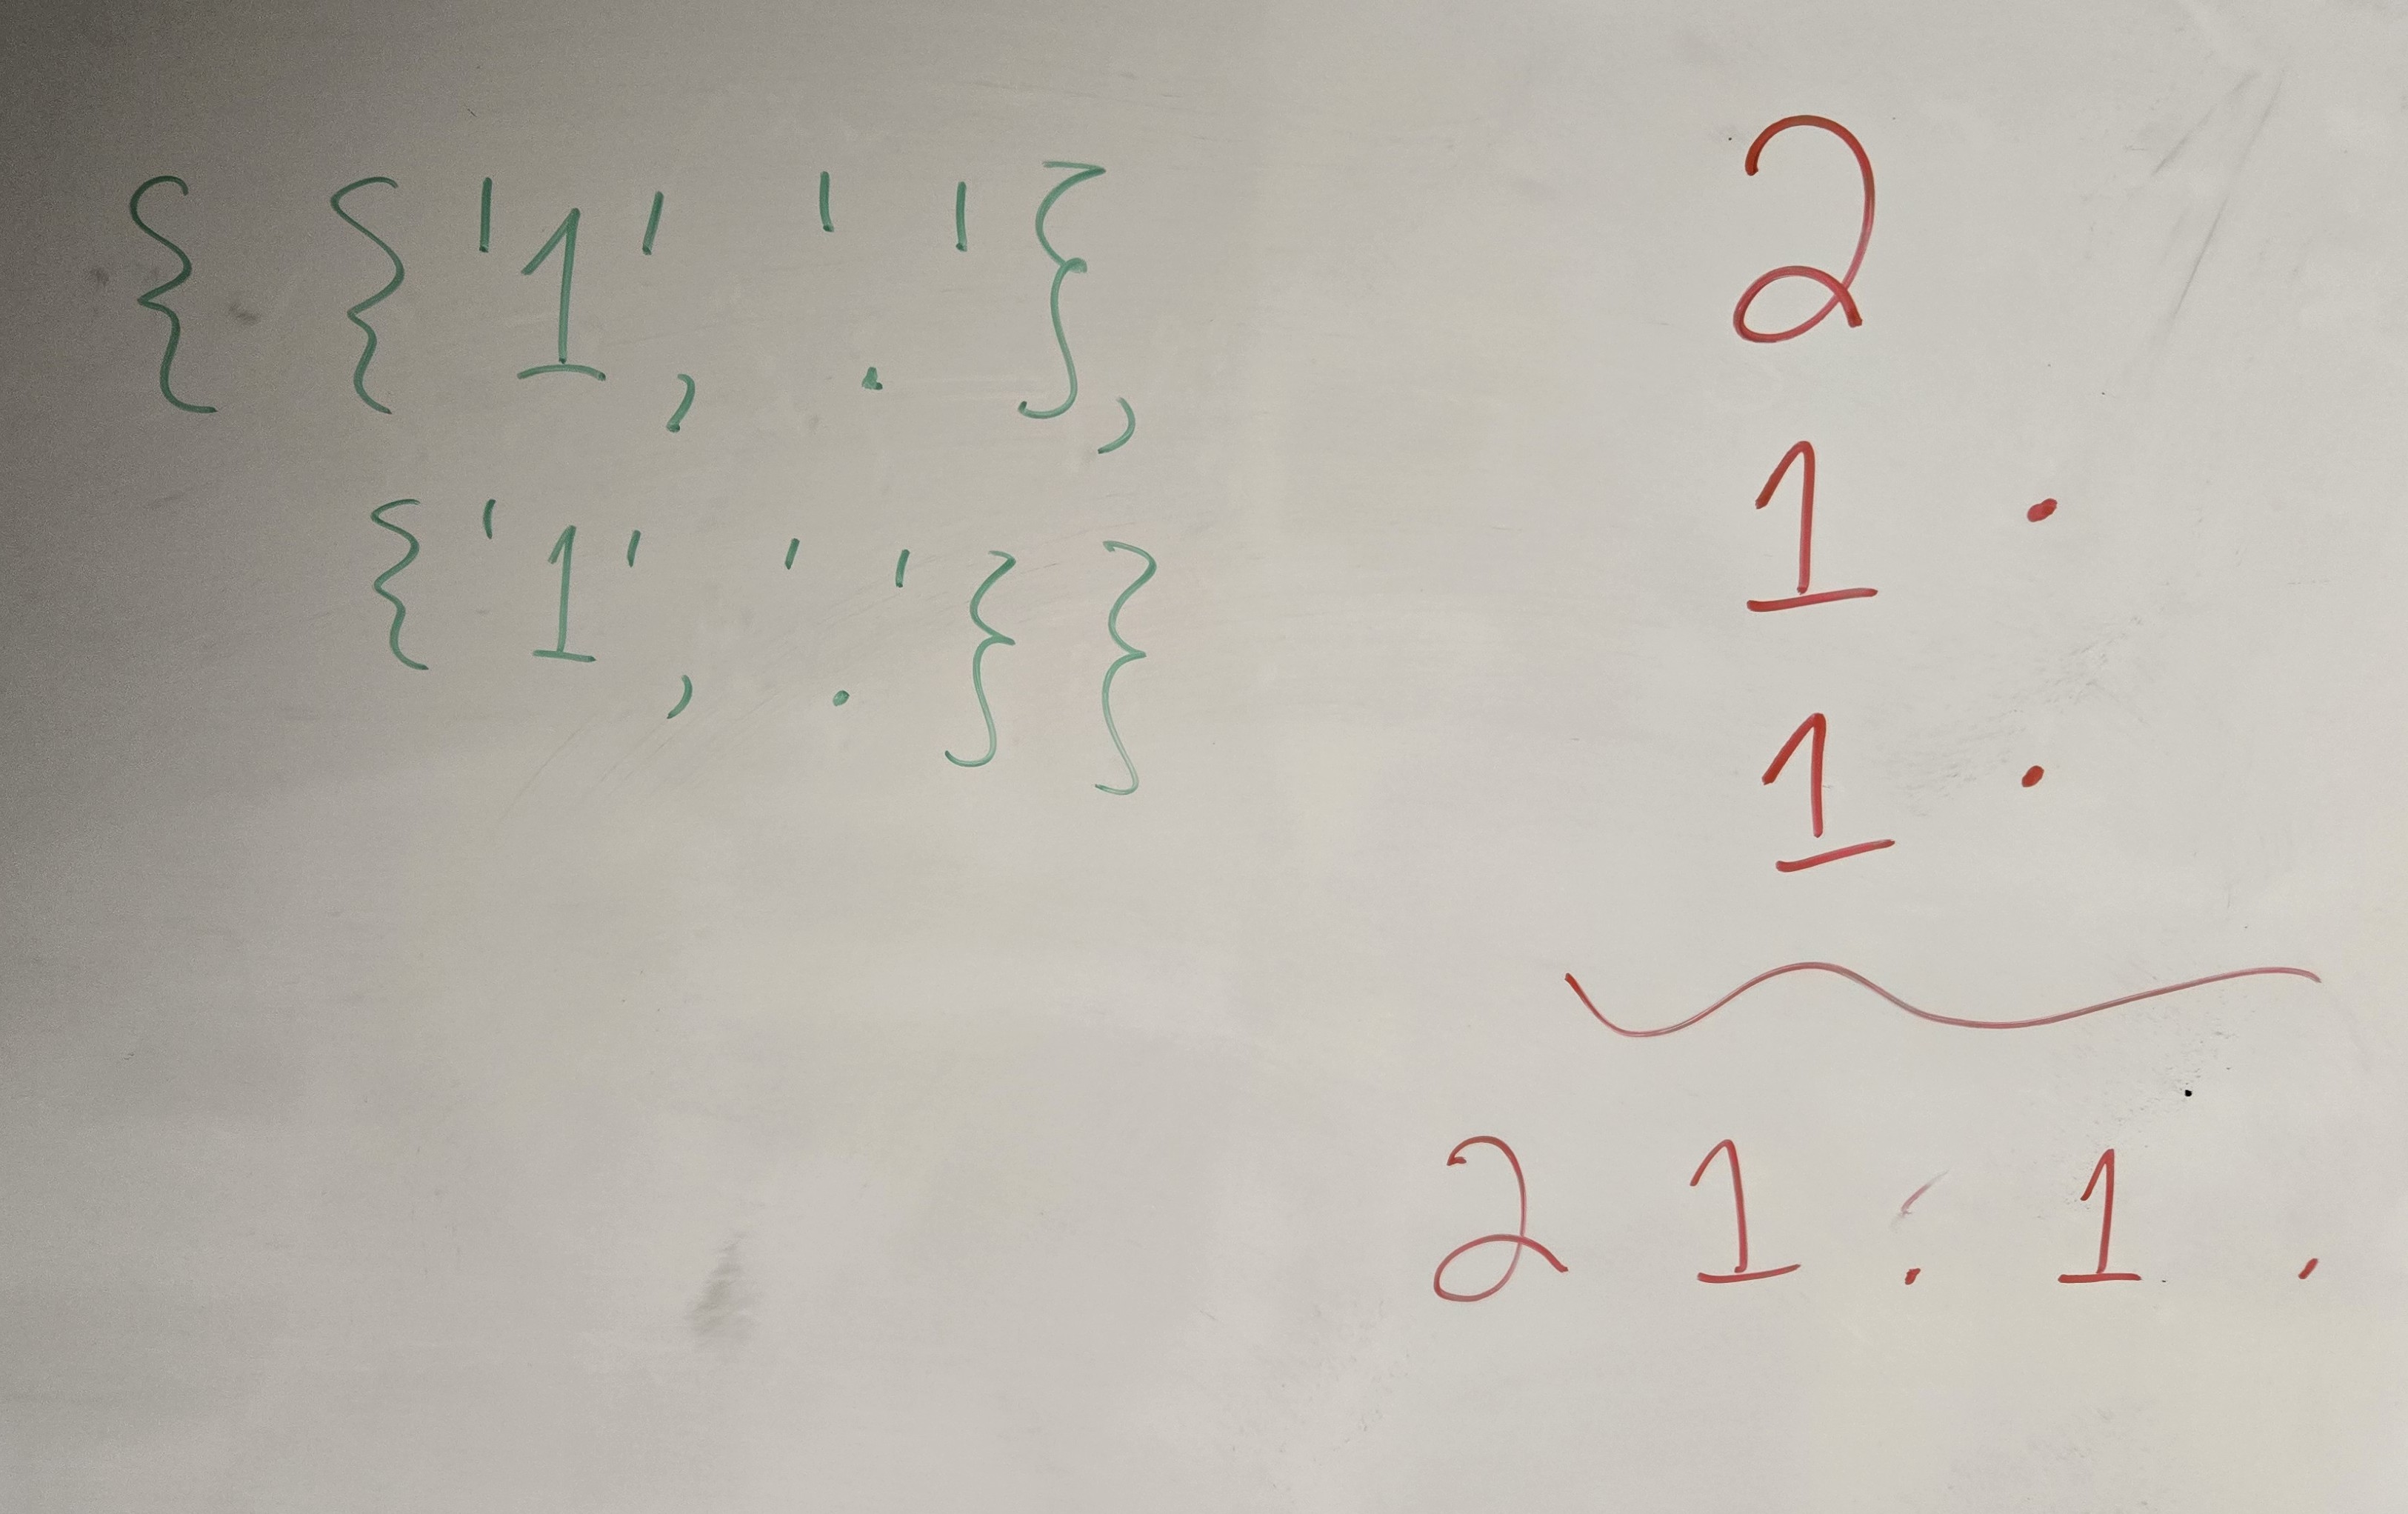 { {'1', '.'},
{'1', '.'} }
2
1 .
1 .
2 1 . 1 .